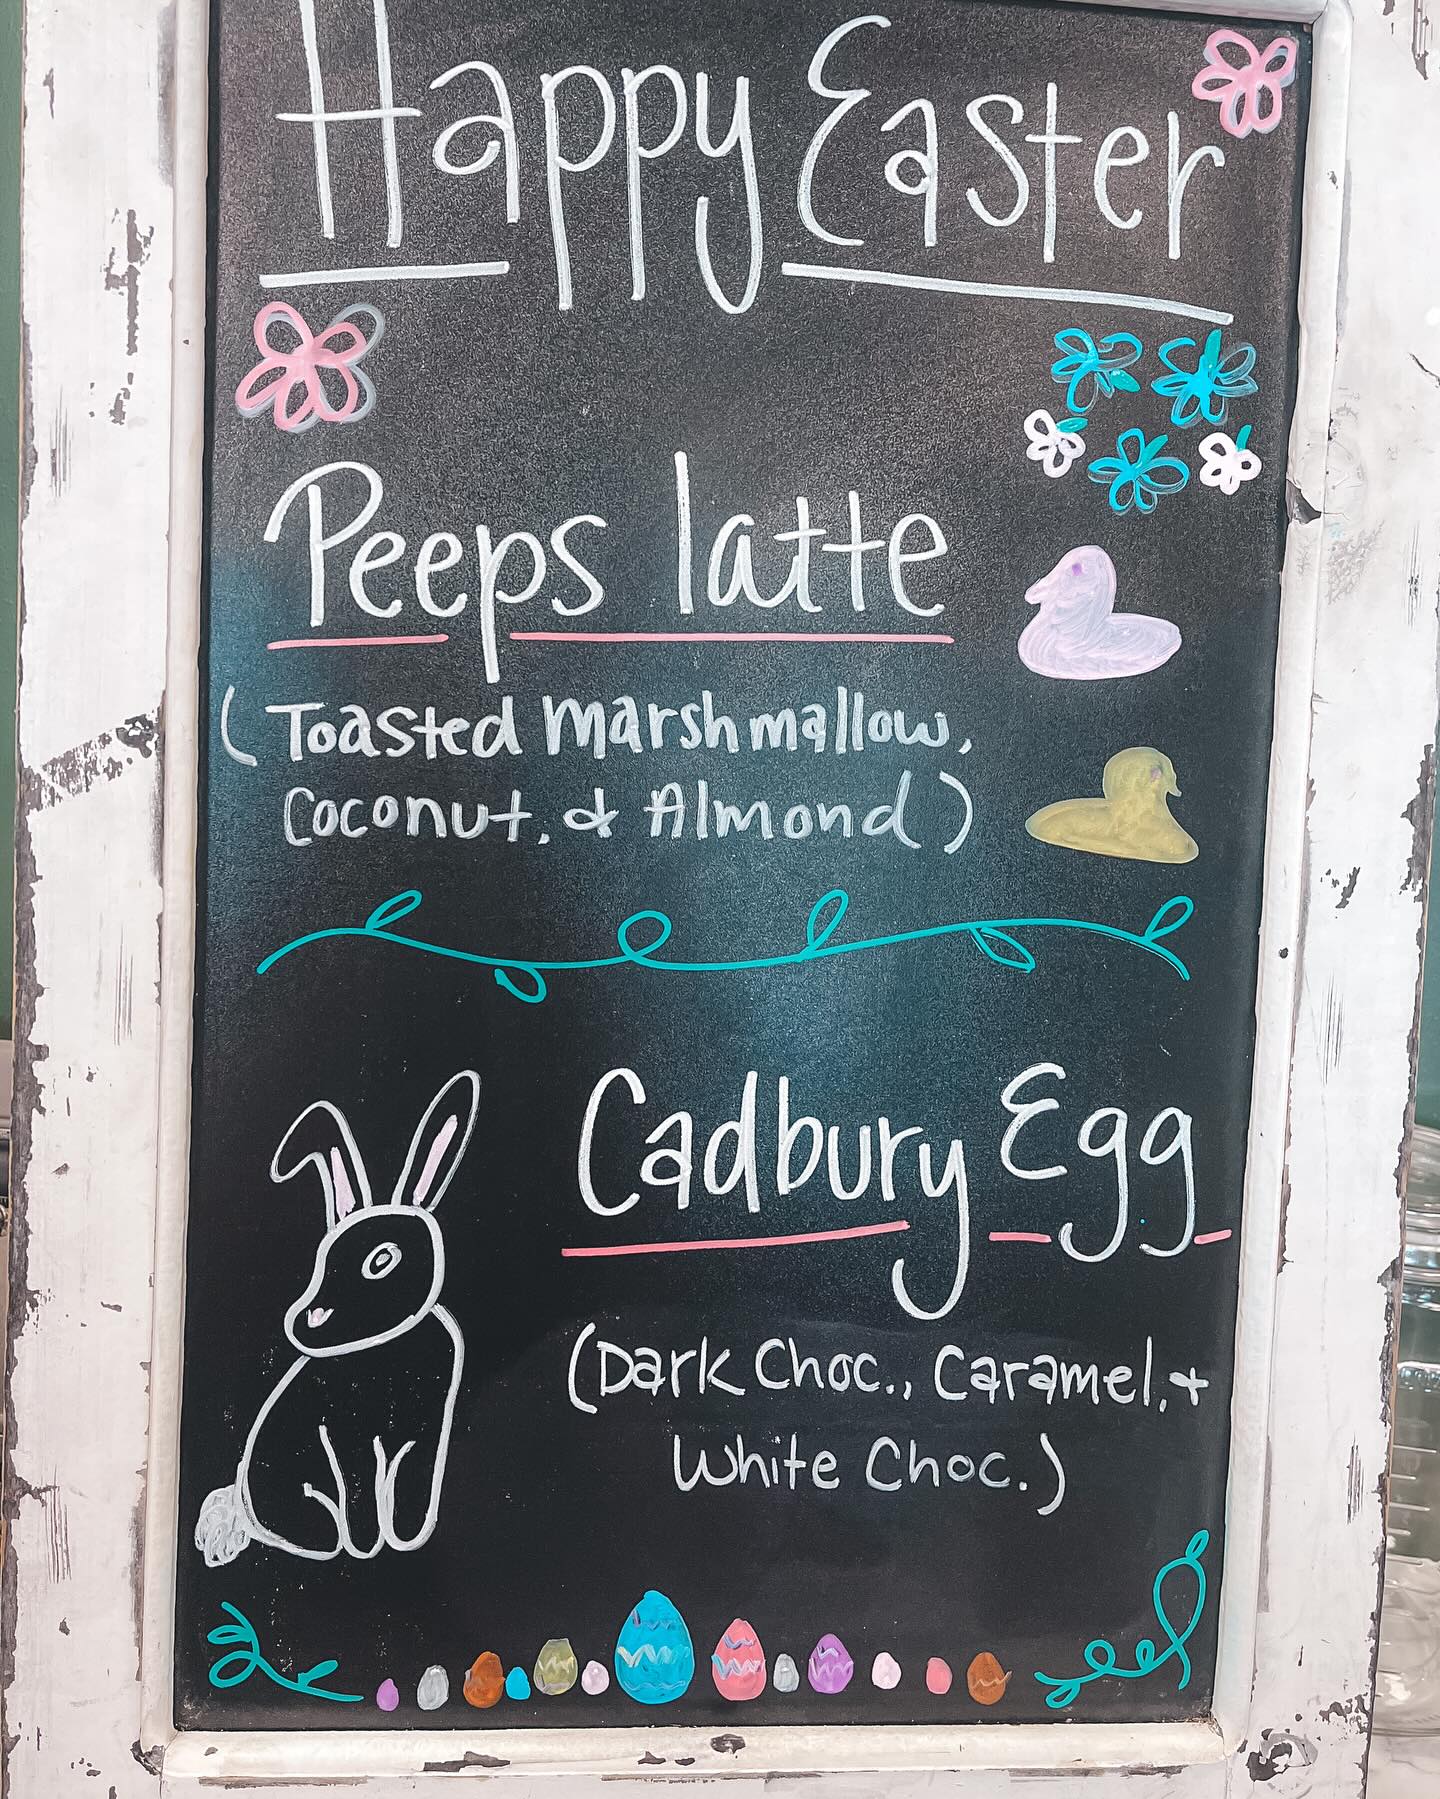 Happy Easter
Peeps latte
(Toasted Marshmallow,
Coconut, & Almond)
Cadbury Egg
(Dark Choc., Caramel, +
White Choc.)